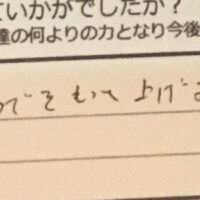 ていかがでしたか？
達の何よりの力となり今後
でそもって上げ